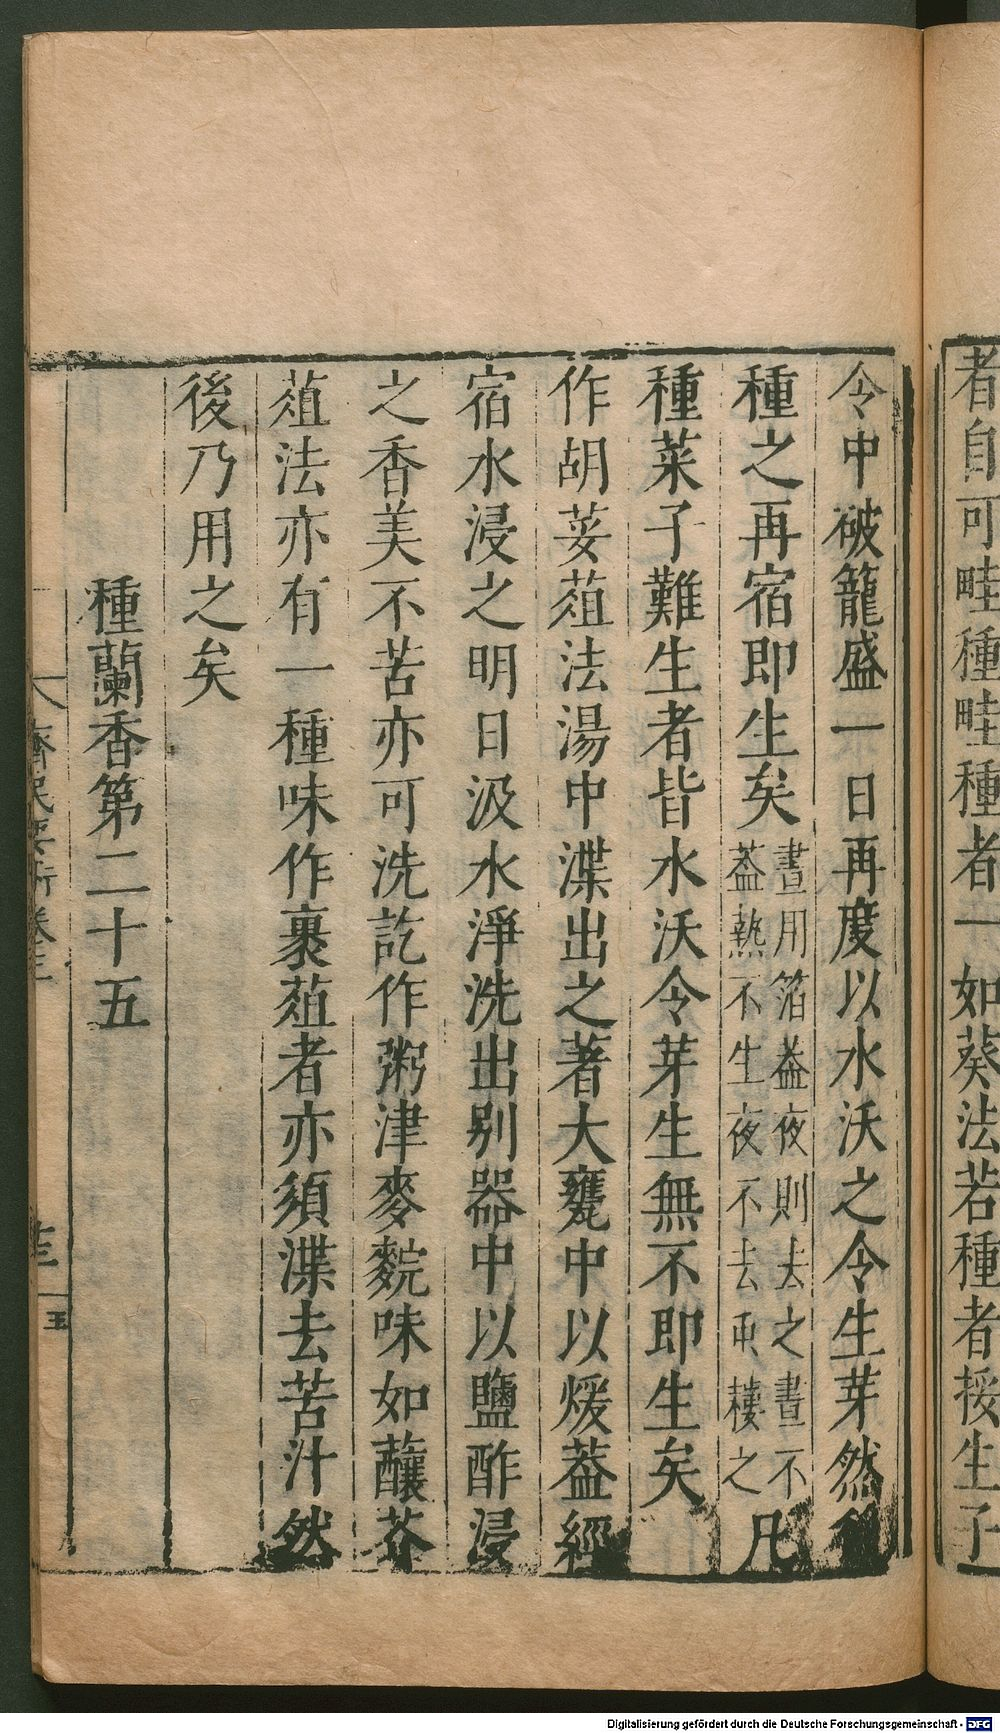 者自可畦種畦種者一如葵法若種者接生子
令中破籠盛一日再度以水沃之令生芽然
種之再宿即生矣晝用箔葢夜則去之晝不
葢熱不生夜不去䖝棲之凡
種菜子難生者皆水沃令芽生無不即生矣
作胡荽葅法湯中渫出之著大甕中以煖葢經
宿水浸之明日汲水淨洗出别器中以鹽酢浸
之香美不苦亦可洗訖作粥津麥䴷味如釀芥
葅法亦有一種味作裹葅者亦須渫去苦汁然
後乃用之矣
種蘭香第二十五
齊民要術卷三
Digitalisierung gefördert durch die Deutsche Forschungsgemeinschaft - DFG